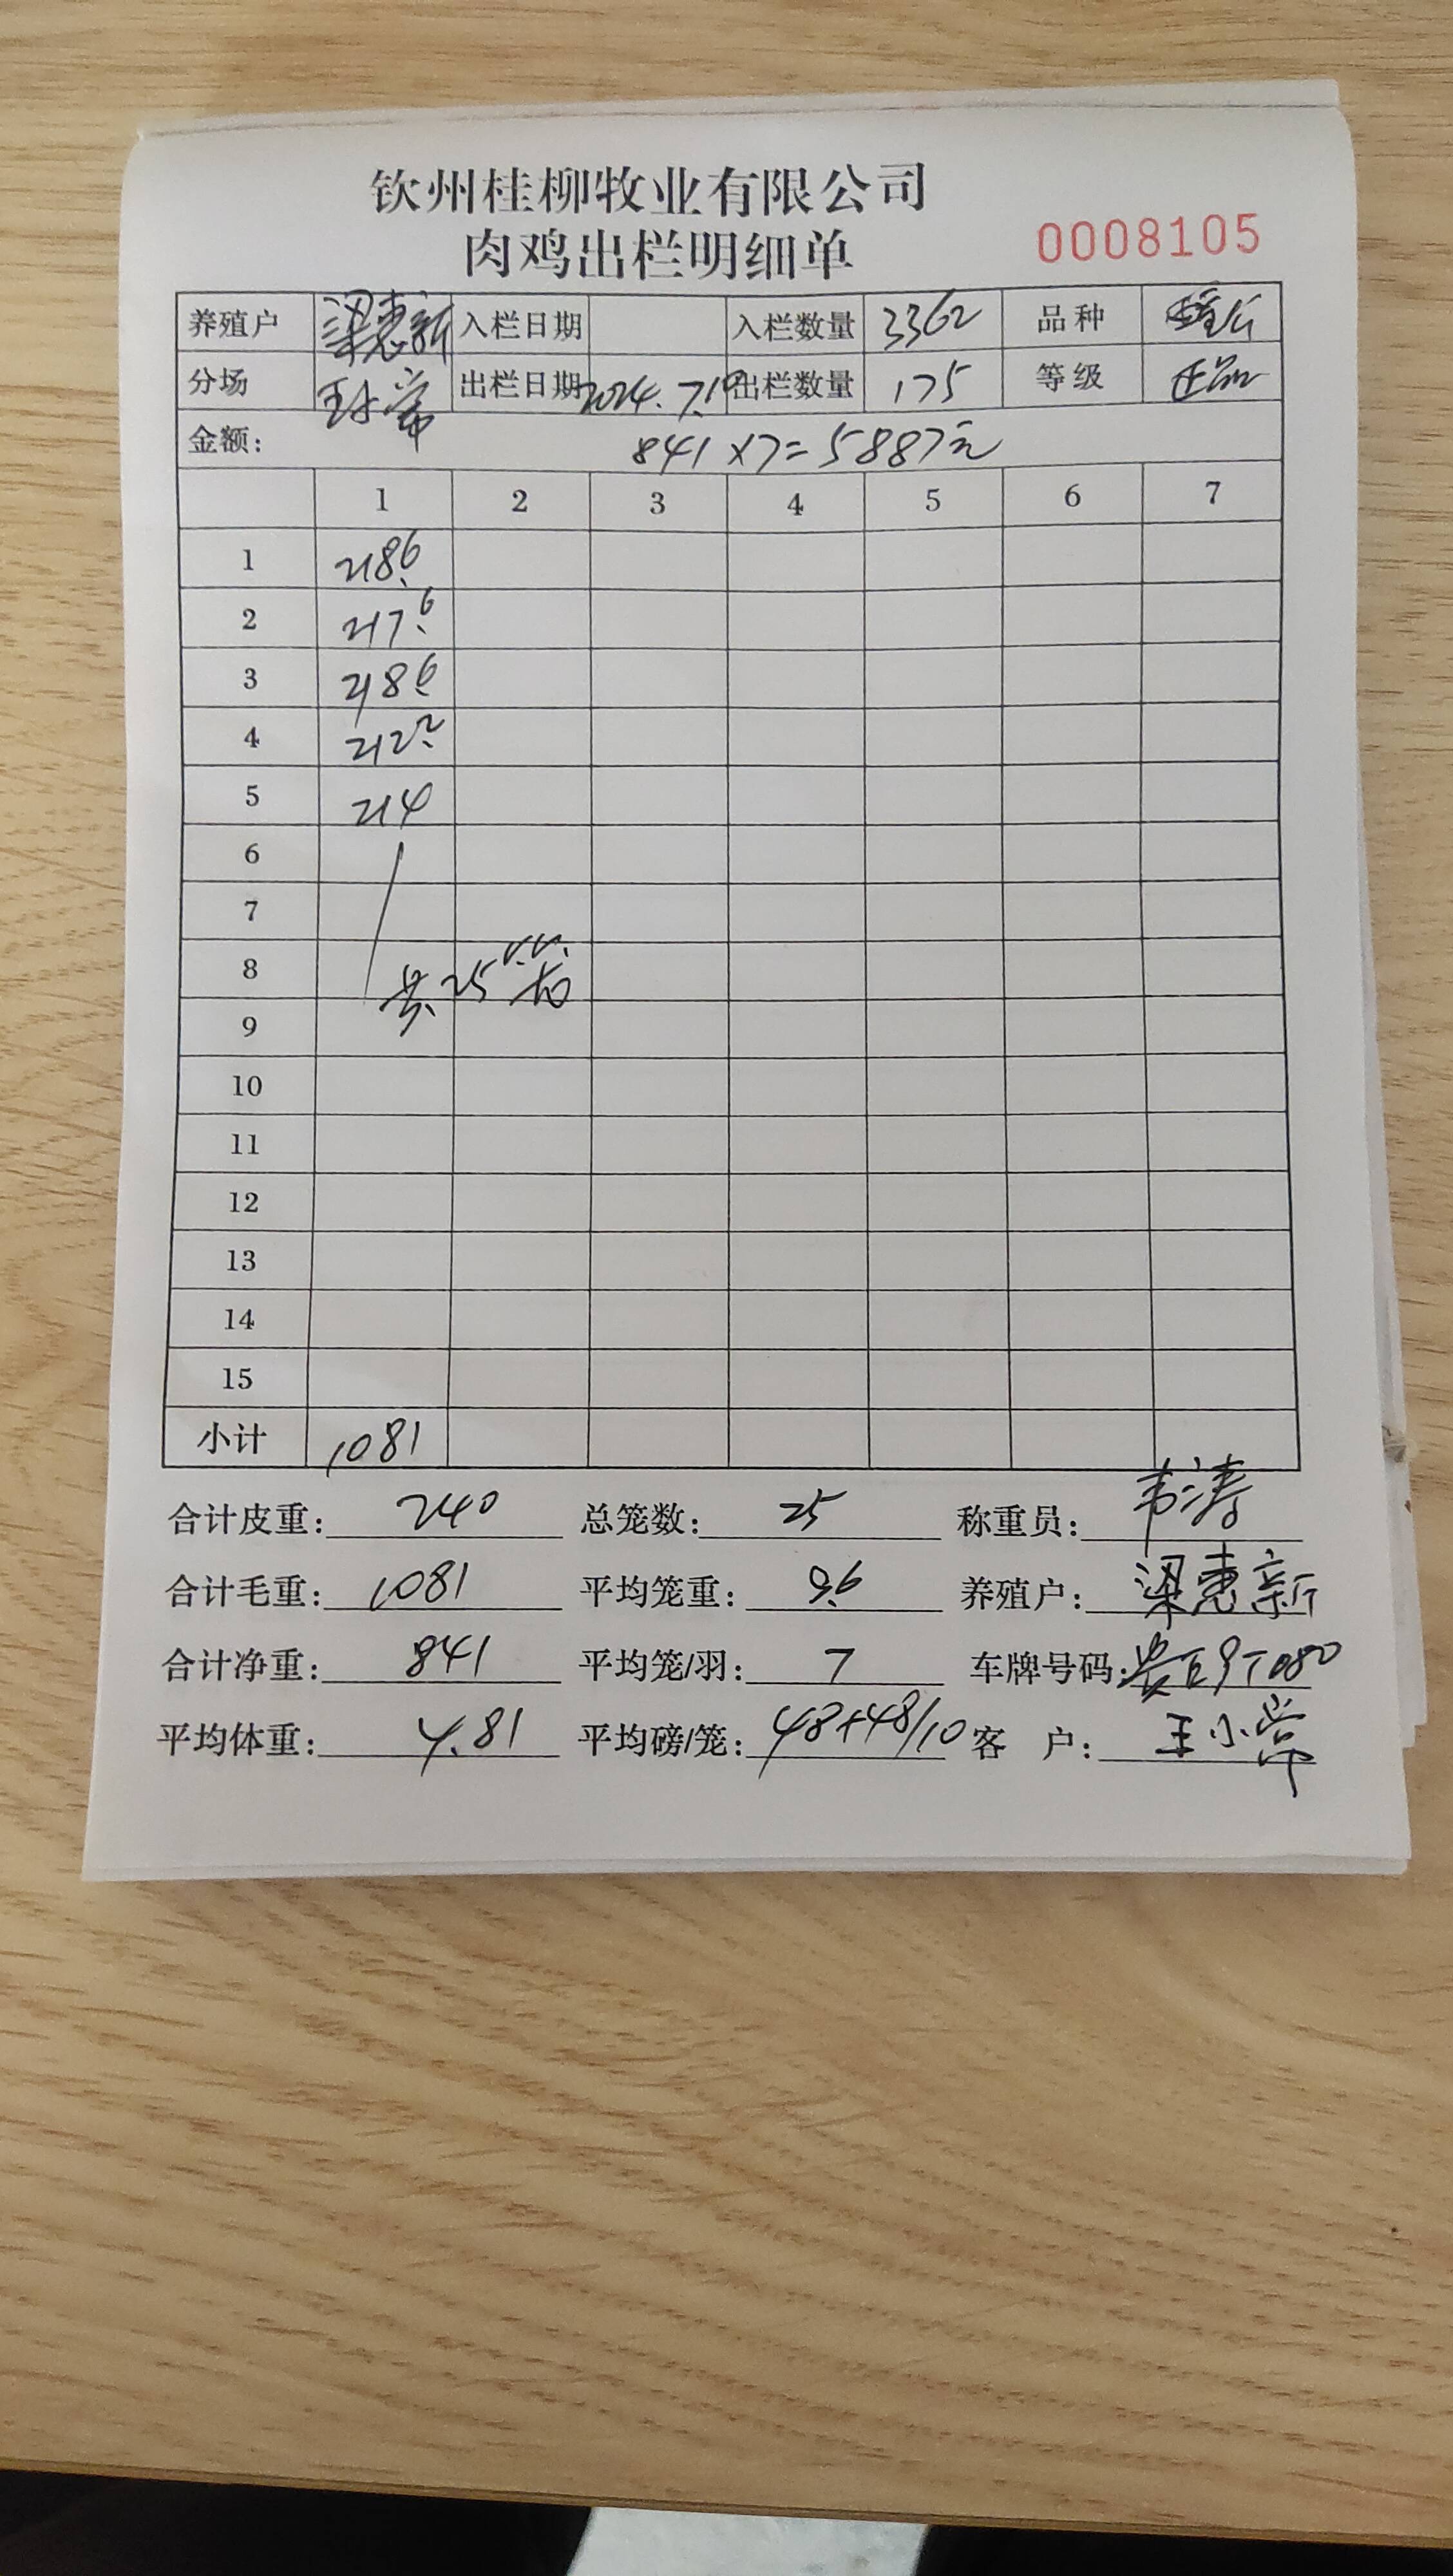 钦州桂柳牧业有限公司
肉鸡出栏明细单
0008105
养殖户 梁惠新 入栏日期 入栏数量 3362 品种
分场 出栏日期 2024.7.10 出栏数量 175 等级 正品
金额: 841×7=5887元
1 2 3 4 5 6 7
1 218.6
2 217.6
3 218.6
4 212.2
5 214
6
7
8 共25
9
10
11
12
13
14
15
小计 1081
合计皮重: 240 总笼数: 25 称重员: 韦涛
合计毛重: 1081 平均笼重: 9.6 养殖户: 梁惠新
合计净重: 841 平均笼/羽: 7 车牌号码:
平均体重: 4.81 平均磅/笼: 48+48/10 客 户: 王小常